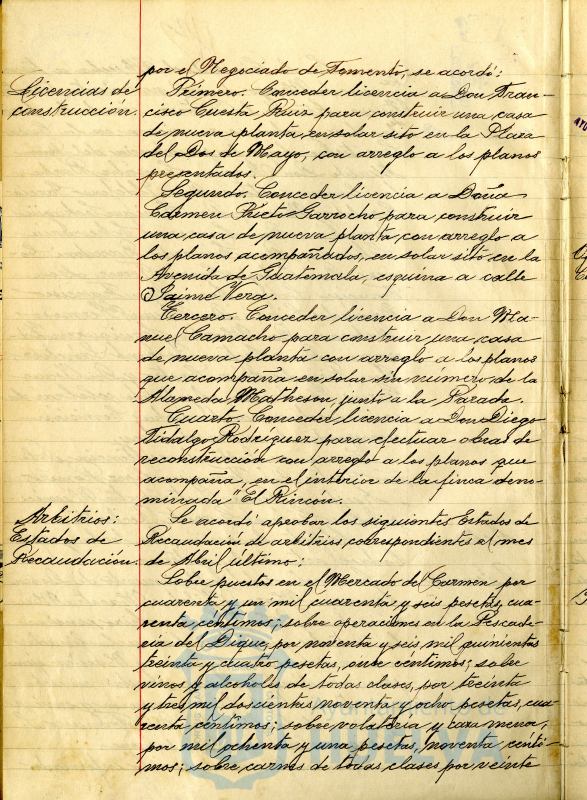 por el Negociado de Fomento, se acordó:
Licencias de
construcción.
Primero. Conceder licencia a Don Fran-
cisco Cuesta Ruiz para construir una casa
de nueva planta, en solar sito en la Plaza
del Dos de Mayo, con arreglo a los planos
presentados.
Segundo. Conceder licencia a Doña
Carmen Prieto Garrocho para construir
una casa de nueva planta, con arreglo a
los planos acompañados, en solar sito en la
Avenida de Guatemala, esquina a calle
Jaime Vera.
Tercero. Conceder licencia a Don Ma-
nuel Camacho para construir una casa
de nueva planta con arreglo a los planos
que acompaña en solar sin número de la
Alameda Matheson, junto a la Parada.
Cuarto. Conceder licencia a Don Diego
Fidalgo Rodríguez para efectuar obras de
reconstrucción con arreglo a los planos que
acompaña, en el interior de la finca deno-
minada "El Rincón.
Arbitrios:
Estados de
Recaudación.
Se acordó aprobar los siguientes Estados de
Recaudación de arbitrios correspondientes al mes
de Abril último:
Sobre puestos en el Mercado del Carmen por
cuarenta y un mil cuarenta y seis pesetas, cua-
renta céntimos; sobre operaciones en la Pescade-
ría del Dique, por noventa y seis mil quinientas
treinta y cuatro pesetas, once céntimos; sobre
vinos y alcoholes de todas clases, por treinta
y tres mil doscientas noventa y ocho pesetas, cua-
renta céntimos; sobre volatería y caza menor,
por mil ochenta y una pesetas, noventa cénti-
mos; sobre carnes de todas clases por veinte